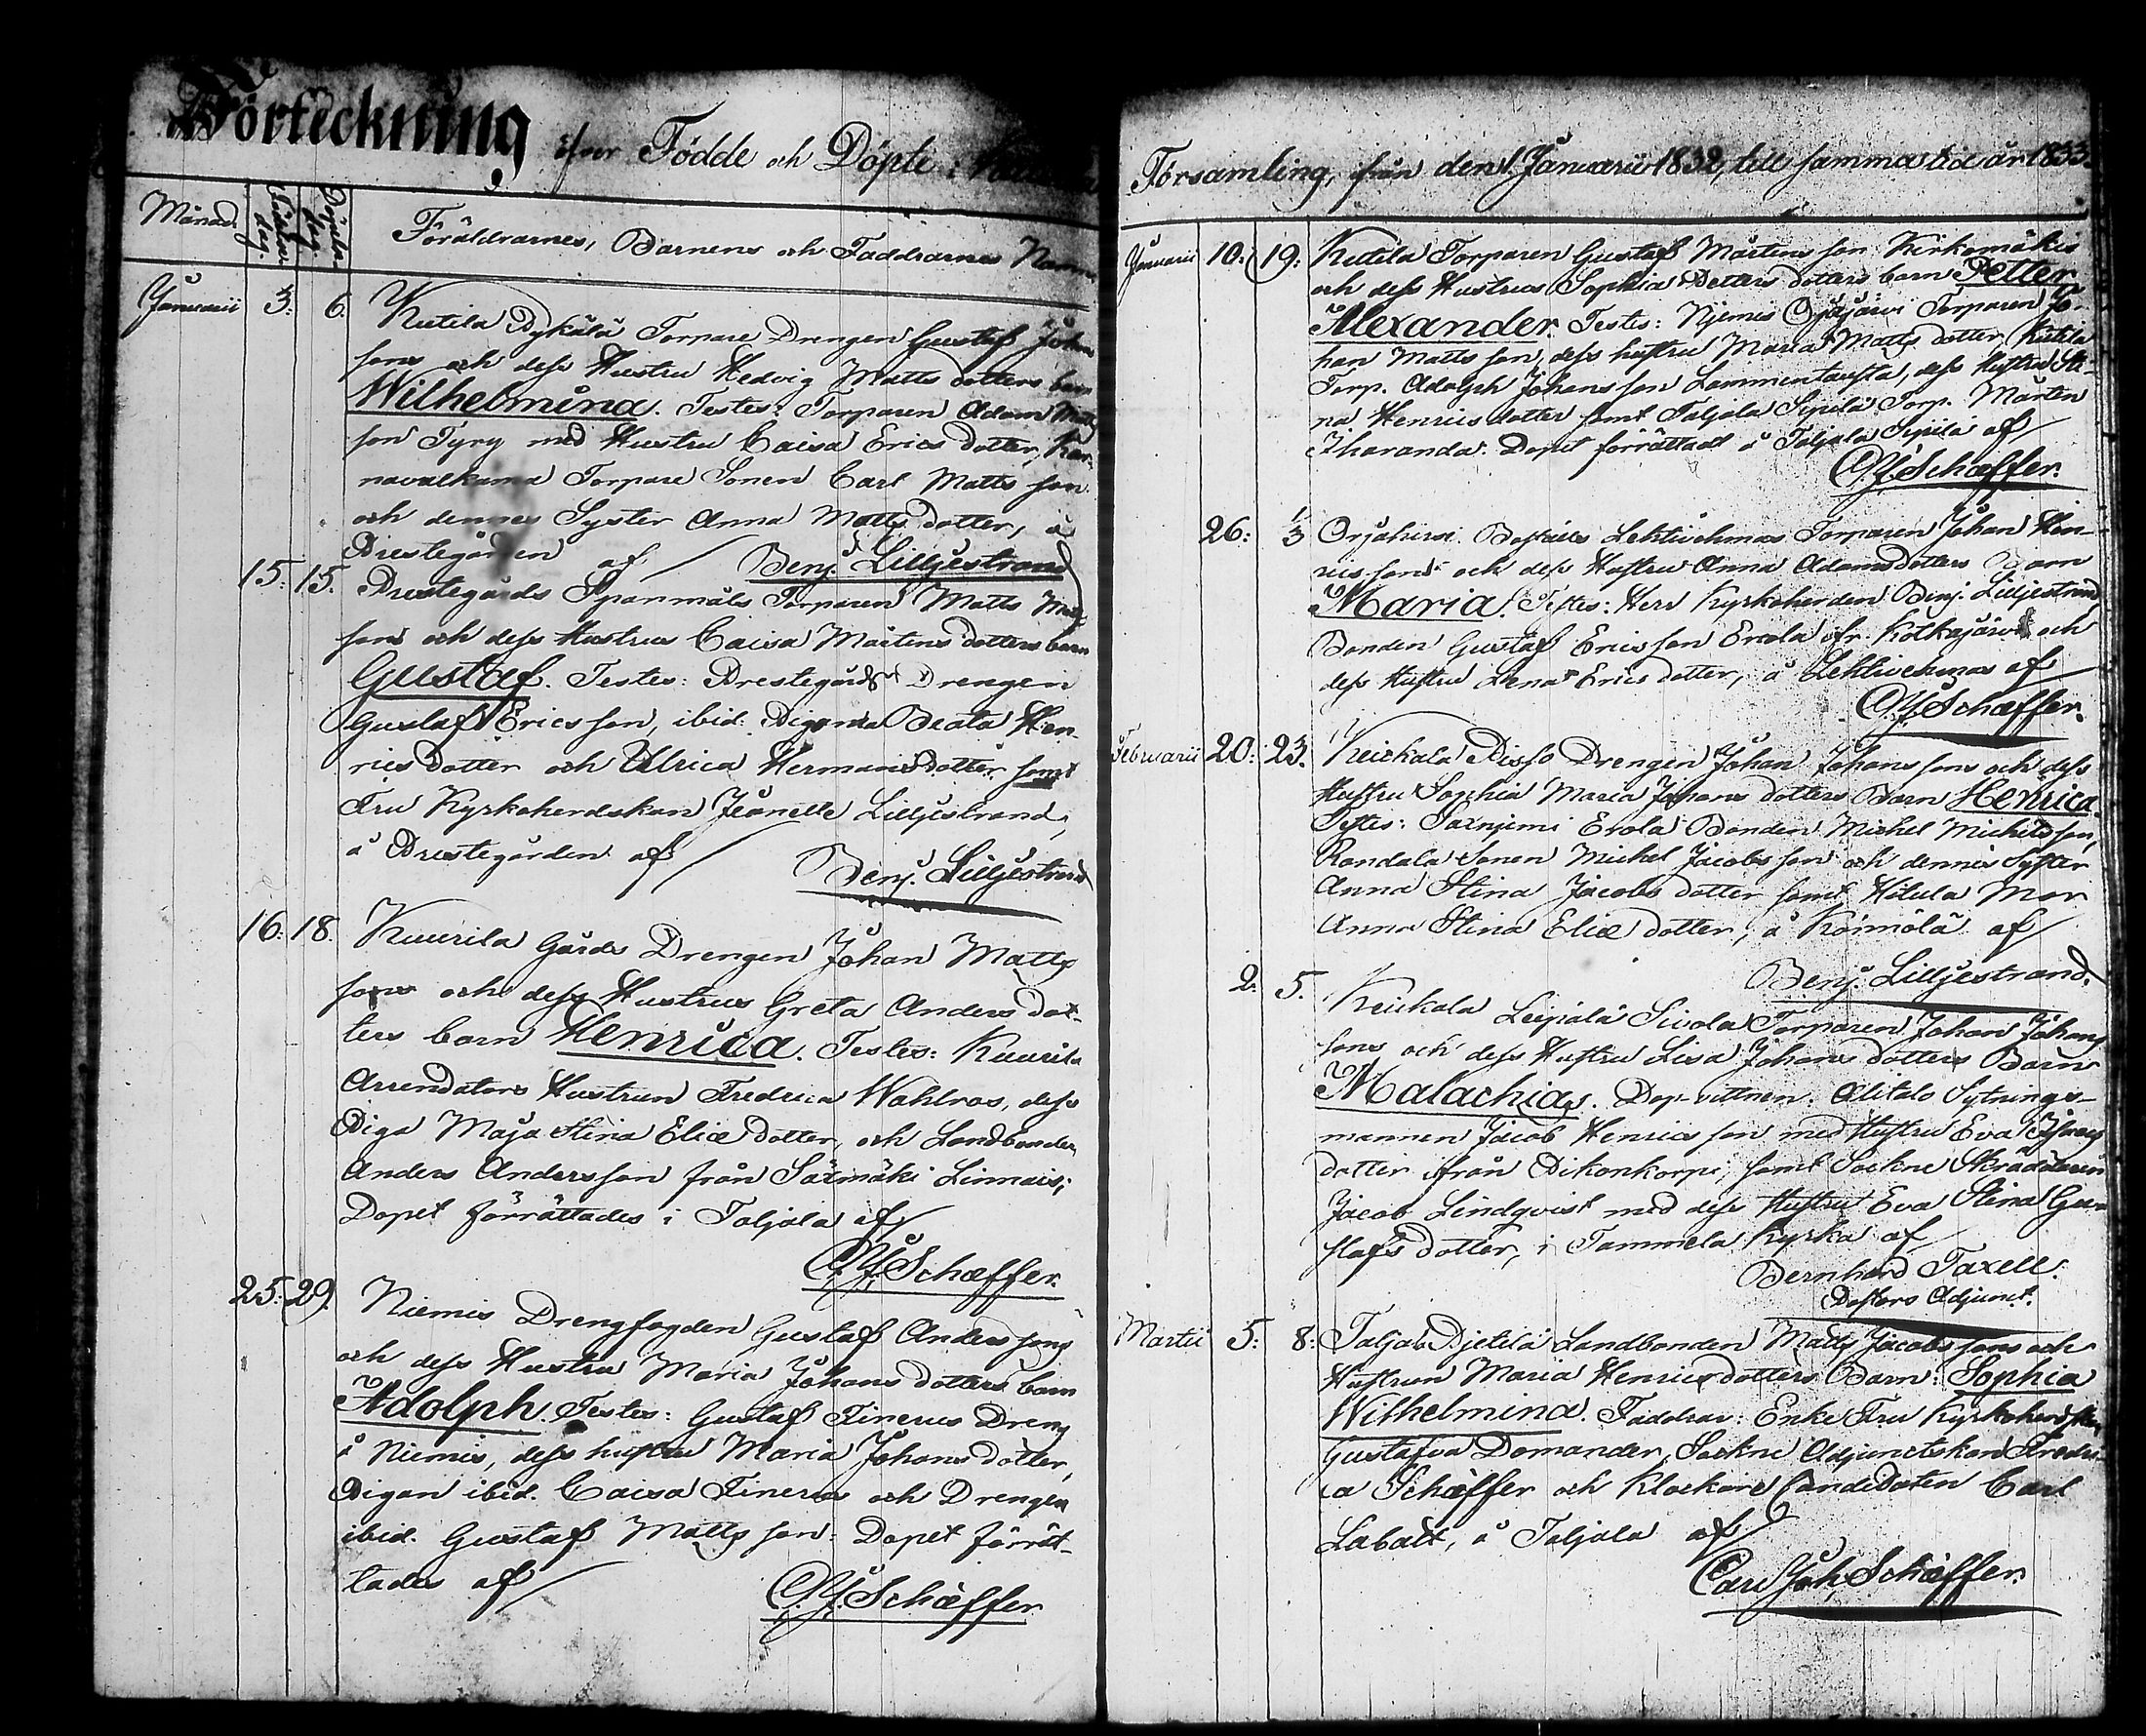 Förteckning öfver Födde och Döpte i
Månad. Födelse dag. Döpelse dag. Föräldrarnes, Barnens och Faddrarnes Namn
Januarii 3. 6. Kutila Pykälä Torpare Drengen Gustaf Johans
sons och dess Hustru Hedvig Matts dotters barn
Wilhelmina. Testes: Torparen Adam Matts
son Tyry med Hustru Caisa Erics dotter, Kar-
navalkama Torpare Sonen Carl Matts son
och dennes Syster Anna Matts dotter, å
Prestegården af / Benj. Lilljestrand
15. 15. Prestegårds Spanmäls Torparen Matts Matts
sons och dess Hustrus Caisa Mårtens dotters barn
Gustaf. Testes: Prestegårds Drengen
Gustaf Ericsson, ibid. Pigorna Beata Hen-
rics dotter och Ulrica Hermans dotter samt
Fru Kyrkoherdskan Jeanette Lilljestrand,
å Prestegården af /
Benj. Lilljestrand
16. 18. Kuurila Gårds Drengen Johan Matts
sons och dess Hustrus Greta Anders dot-
ters barn Henrica. Testes: Kuurila
Arrendators Hustrun Fredrica Wahlroos, dess
Piga Maja Stina Eliæ dotter, och Landbonden
Anders Andersson från Särmäki Linnais;
Dopet förrättades i Taljala af /
C. J. Schæffer.
25. 29. Niemis Drengfogden Gustaf Anders sons
och dess Hustru Maria Johans dotters barn
Adolph. Testes: Gustaf Finerus Dreng
å Niemis, dess hustru Maria Johans dotter,
Pigan ibid. Caisa Finerus och Drengen
ibid. Gustaf Matts son. Dopet förrät-
tades af /
C. J. Schæffer
Församling, ifrån den 1. Januarii 1832, till samma tid år 1833.
Januarii 10. 19. Kutila Torparen Gustaf Mårtens son Kirkomäkis
och dess Hustrus Sophia Petters dotters barn Petter
Alexander. Testes: Njemis Ojajärvi Torparen Jo-
han Matts son, dess hustru Maria Matts dotter, Kutila
Torp. Adolph Johans son Lammentausta, dess hustru Sti-
na Henrics dotter samt Taljala Sipilä Torp. Mårten
Iharanda. Dopet förrättadt å Taljala Sipilä af /
C. J. Schæffer.
26. 1/3 Orjahirsi Boställes Lehtivehmas Torparen Johan Hen-
rics sons och dess Hustru Anna Adams dotters Barn
Maria. Testes: Herr Kyrkoherden Benj. Lilljestrand,
Bonden Gustaf Erics son Erola ifr. Kotkajärvi och
dess Hustru Lena Erics dotter, å Lehtivehmas af
C. J. Schæffer.
Februarii 20. 23. Keikala Pisso Drengen Johan Johans sons och dess
Hustru Sophia Maria Johans dotters Barn Henrica.
Testes: Saxnjemi Erola Bonden Michel Michels son,
Randala Sonen Michel Jacobs son och dennes Syster
Anna Stina Jacobs dotter samt Hitula Mor
Anna Stina Eliæ dotter, å Körmölä af /
Benj. Lilljestrand.
2. 5. Keikala Leipälä Sivola Torparen Johan Johans
sons och dess Hustru Lisa Johans dotters Barn
Malachias. Dop-vittnen. Alitalo Sytnings-
mannen Jacob Henrics son med Hustru Eva Isacs
dotter ifrån Pikonkorpi, samt Sockne Skräddaren
Jacob Lindqvist med dess Hustru Eva Stina Gu-
stafs dotter, i Tammela Kyrka af /
Bernhard Taxell.
Pastors Adjunct.
Martii 5. 8. Taljala Pjetilä Landbonden Matts Jacobs sons och
Hustrun Maria Henrics dotters Barn: Sophia
Wilhelmina. Faddrar: Enke Fru Kyrkoherdskan
Gustafva Domander, Sockne Adjunctskan Fredri-
ca Schæffer och Klockare Candidaten Carl
Labatt, å Taljala af /
Carl Joh. Schæffer.